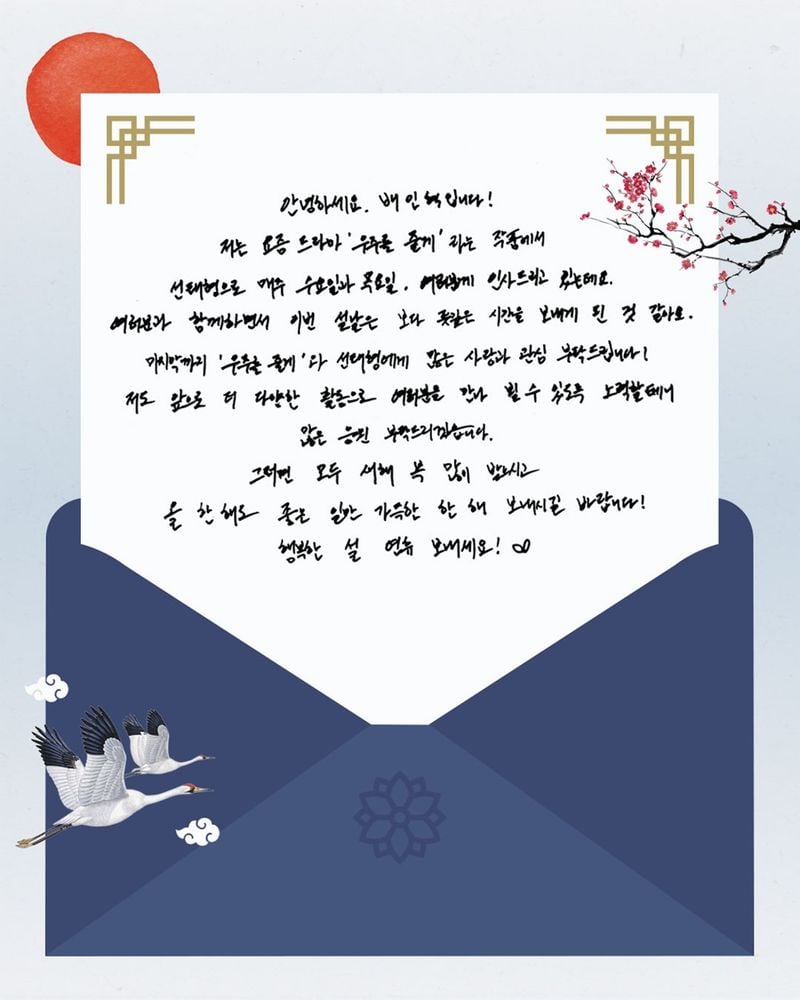 안녕하세요. 배인혁입니다!
저는 요즘 드라마 '우주를 줄게' 라는 작품에서
선태형으로 매주 수요일과 목요일, 여러분께 인사드리고 있는데요.
여러분과 함께하면서 이번 설날은 보다 뜻깊은 시간을 보내게 된 것 같아요.
마지막까지 '우주를 줄게'와 선태형에게 많은 사랑과 관심 부탁드립니다!
저도 앞으로 더 다양한 활동으로 여러분을 만나 뵐 수 있도록 노력할테니
많은 응원 부탁드리겠습니다.
그러면 모두 새해 복 많이 받으시고
올 한해도 좋은 일만 가득한 한 해 보내시길 바랍니다!
행복한 설 연휴 보내세요!